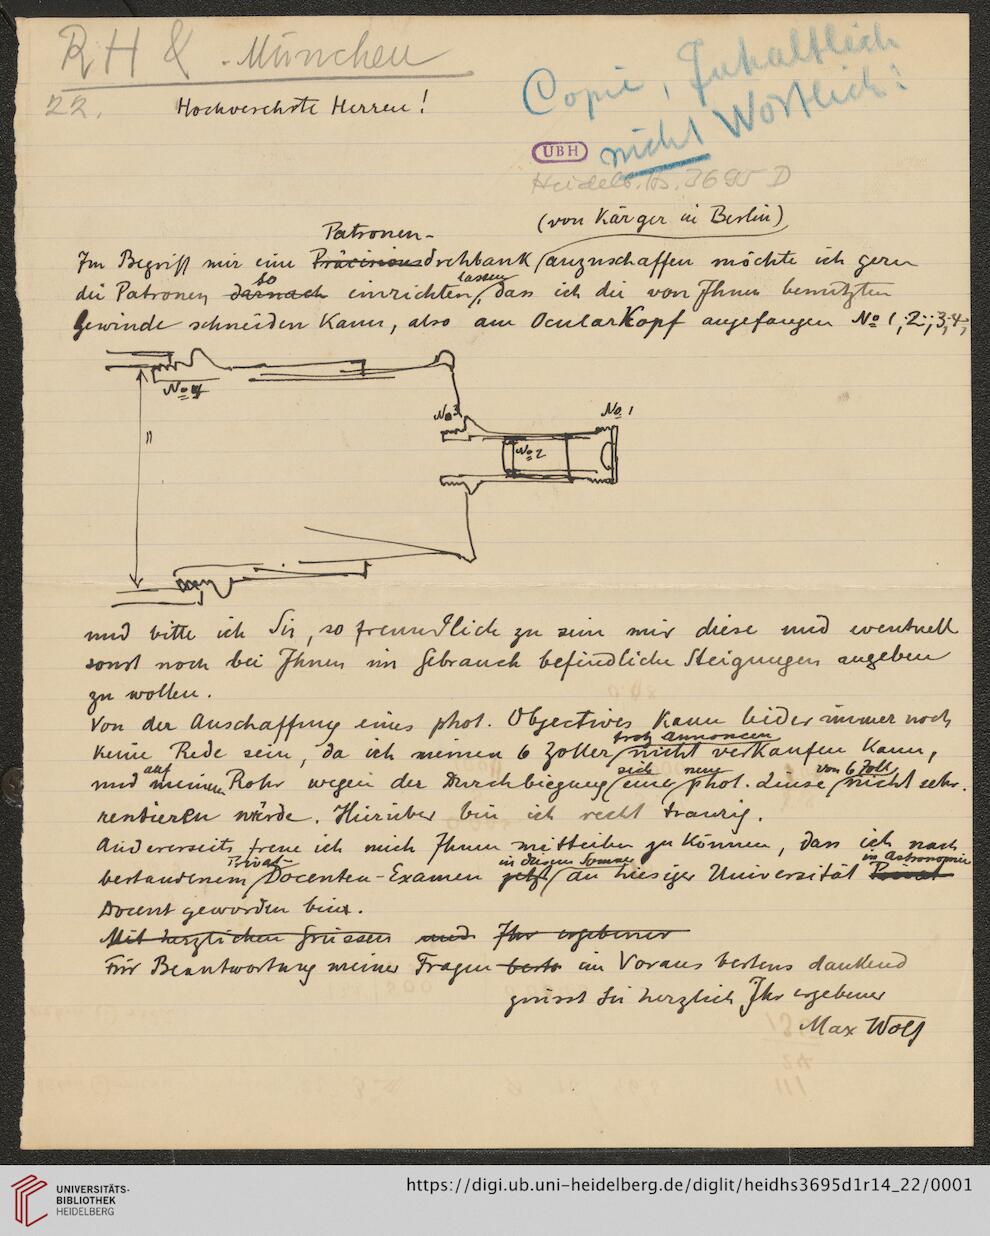 R H & München
22.
Hochverehrte Herren!
Copie, Inhaltlich
nicht Wörtlich!
UBH
Heidelb. Hs. 3695 D
(von Kärger in Berlin)
Patronen-
Im Begriff mir eine Präcisionsdrehbank anzuschaffen möchte ich gern
so lassen
die Patronen darnach einrichten, dass ich die von Ihnen benützten
Gewinde schneiden kann, also am OcularKopf angefangen No 1, 2, 3, 4,
No 4
No 3
No 1
No 2
und bitte ich Sie, so freundlich zu sein mir diese und eventuell
sonst noch bei Ihnen im Gebrauch befindliche Steigungen angeben
zu wollen.
Von der Anschaffung eines phot. Objectives kann leider immer noch
trotz annoncen
keine Rede sein, da ich meinen 6 Zoller nicht verkaufen kann,
auf sich neue von 6 Zoll
und meinem Rohr wegen der Durchbiegung eine phot. Linse nicht sehr
rentieren würde. Hierüber bin ich recht traurig.
Andererseits freue ich mich Ihnen mitteilen zu können, dass ich nach
Privat- in diesem Sommer in Astronomie
bestandenem Docenten-Examen jetzt an hiesiger Universität Privat
Docent geworden bin.
Mit herzlichen Grüssen und Ihr ergebener
Für Beantwortung meiner Fragen beste im Voraus bestens dankend
grüsst Sie herzlich Ihr ergebener
Max Wolf
UNIVERSITÄTS-
BIBLIOTHEK
HEIDELBERG
https://digi.ub.uni-heidelberg.de/diglit/heidhs3695d1r14_22/0001